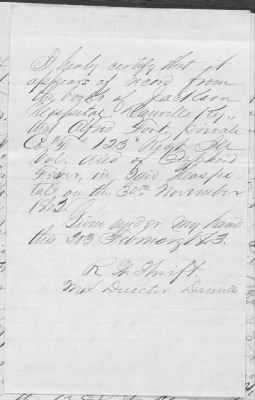 I hereby certify that it
appears of record from
the books of Jackson
Hospital Danville Ky.,
that Alfred Fort, private
Co "F" 123" Regt Ill
Vol. died of Typhoid
Fever, in said Hospi
tal, on the 30th November
1862.
Given under my hand
this February 1863.
R. W. Thrift
Med Director Danville